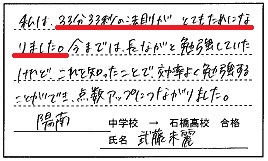 私は、33分33秒の法則が とてもためにな
りました。今までは、長ながと勉強していた
けれど、これを知ったことで効率よく勉強する
ことができ、点数アップにつながりました。
陽南 中学校 → 石橋高校 合格
氏名 武藤未麗